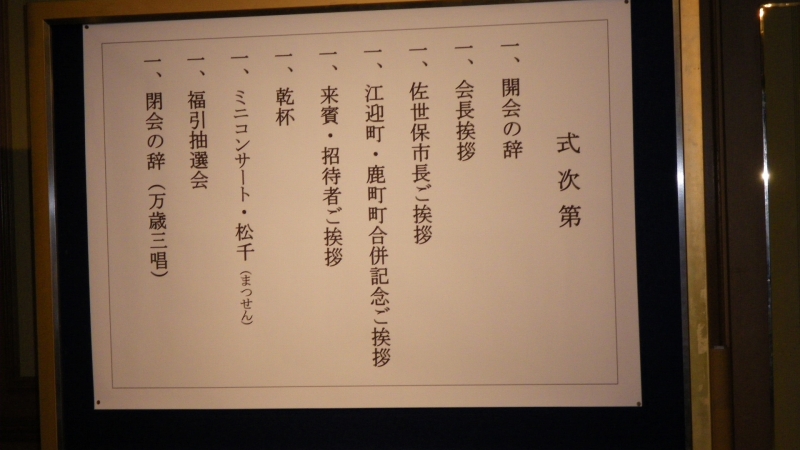 式次第
一、開会の辞
一、会長挨拶
一、佐世保市長ご挨拶
一、江迎町・鹿町町合併記念ご挨拶
一、来賓・招待者ご挨拶
一、乾杯
一、ミニコンサート・松千（まつせん）
一、福引抽選会
一、閉会の辞（万歳三唱）